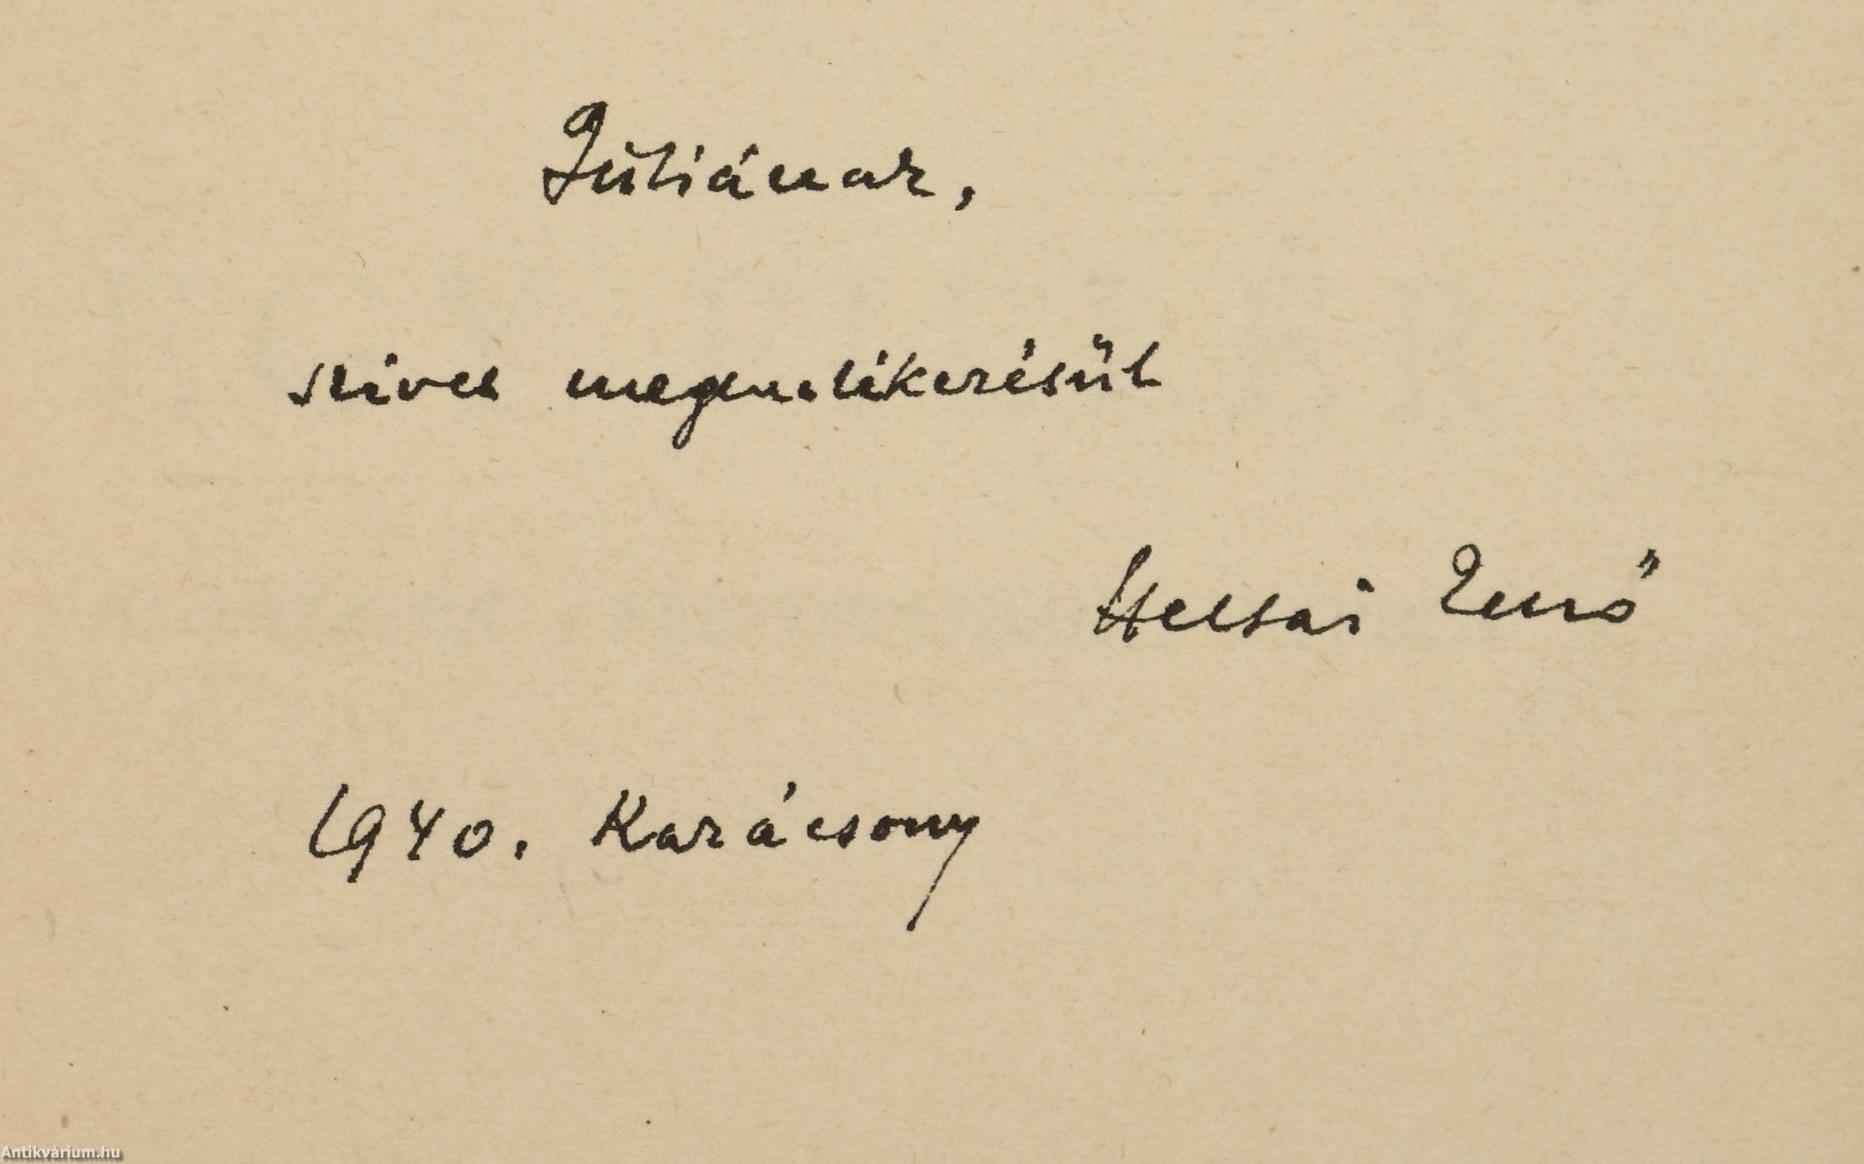 Júliának,
szives megemlékezésül
Heltai Jenő
1940. Karácsony
Antikvárium.hu